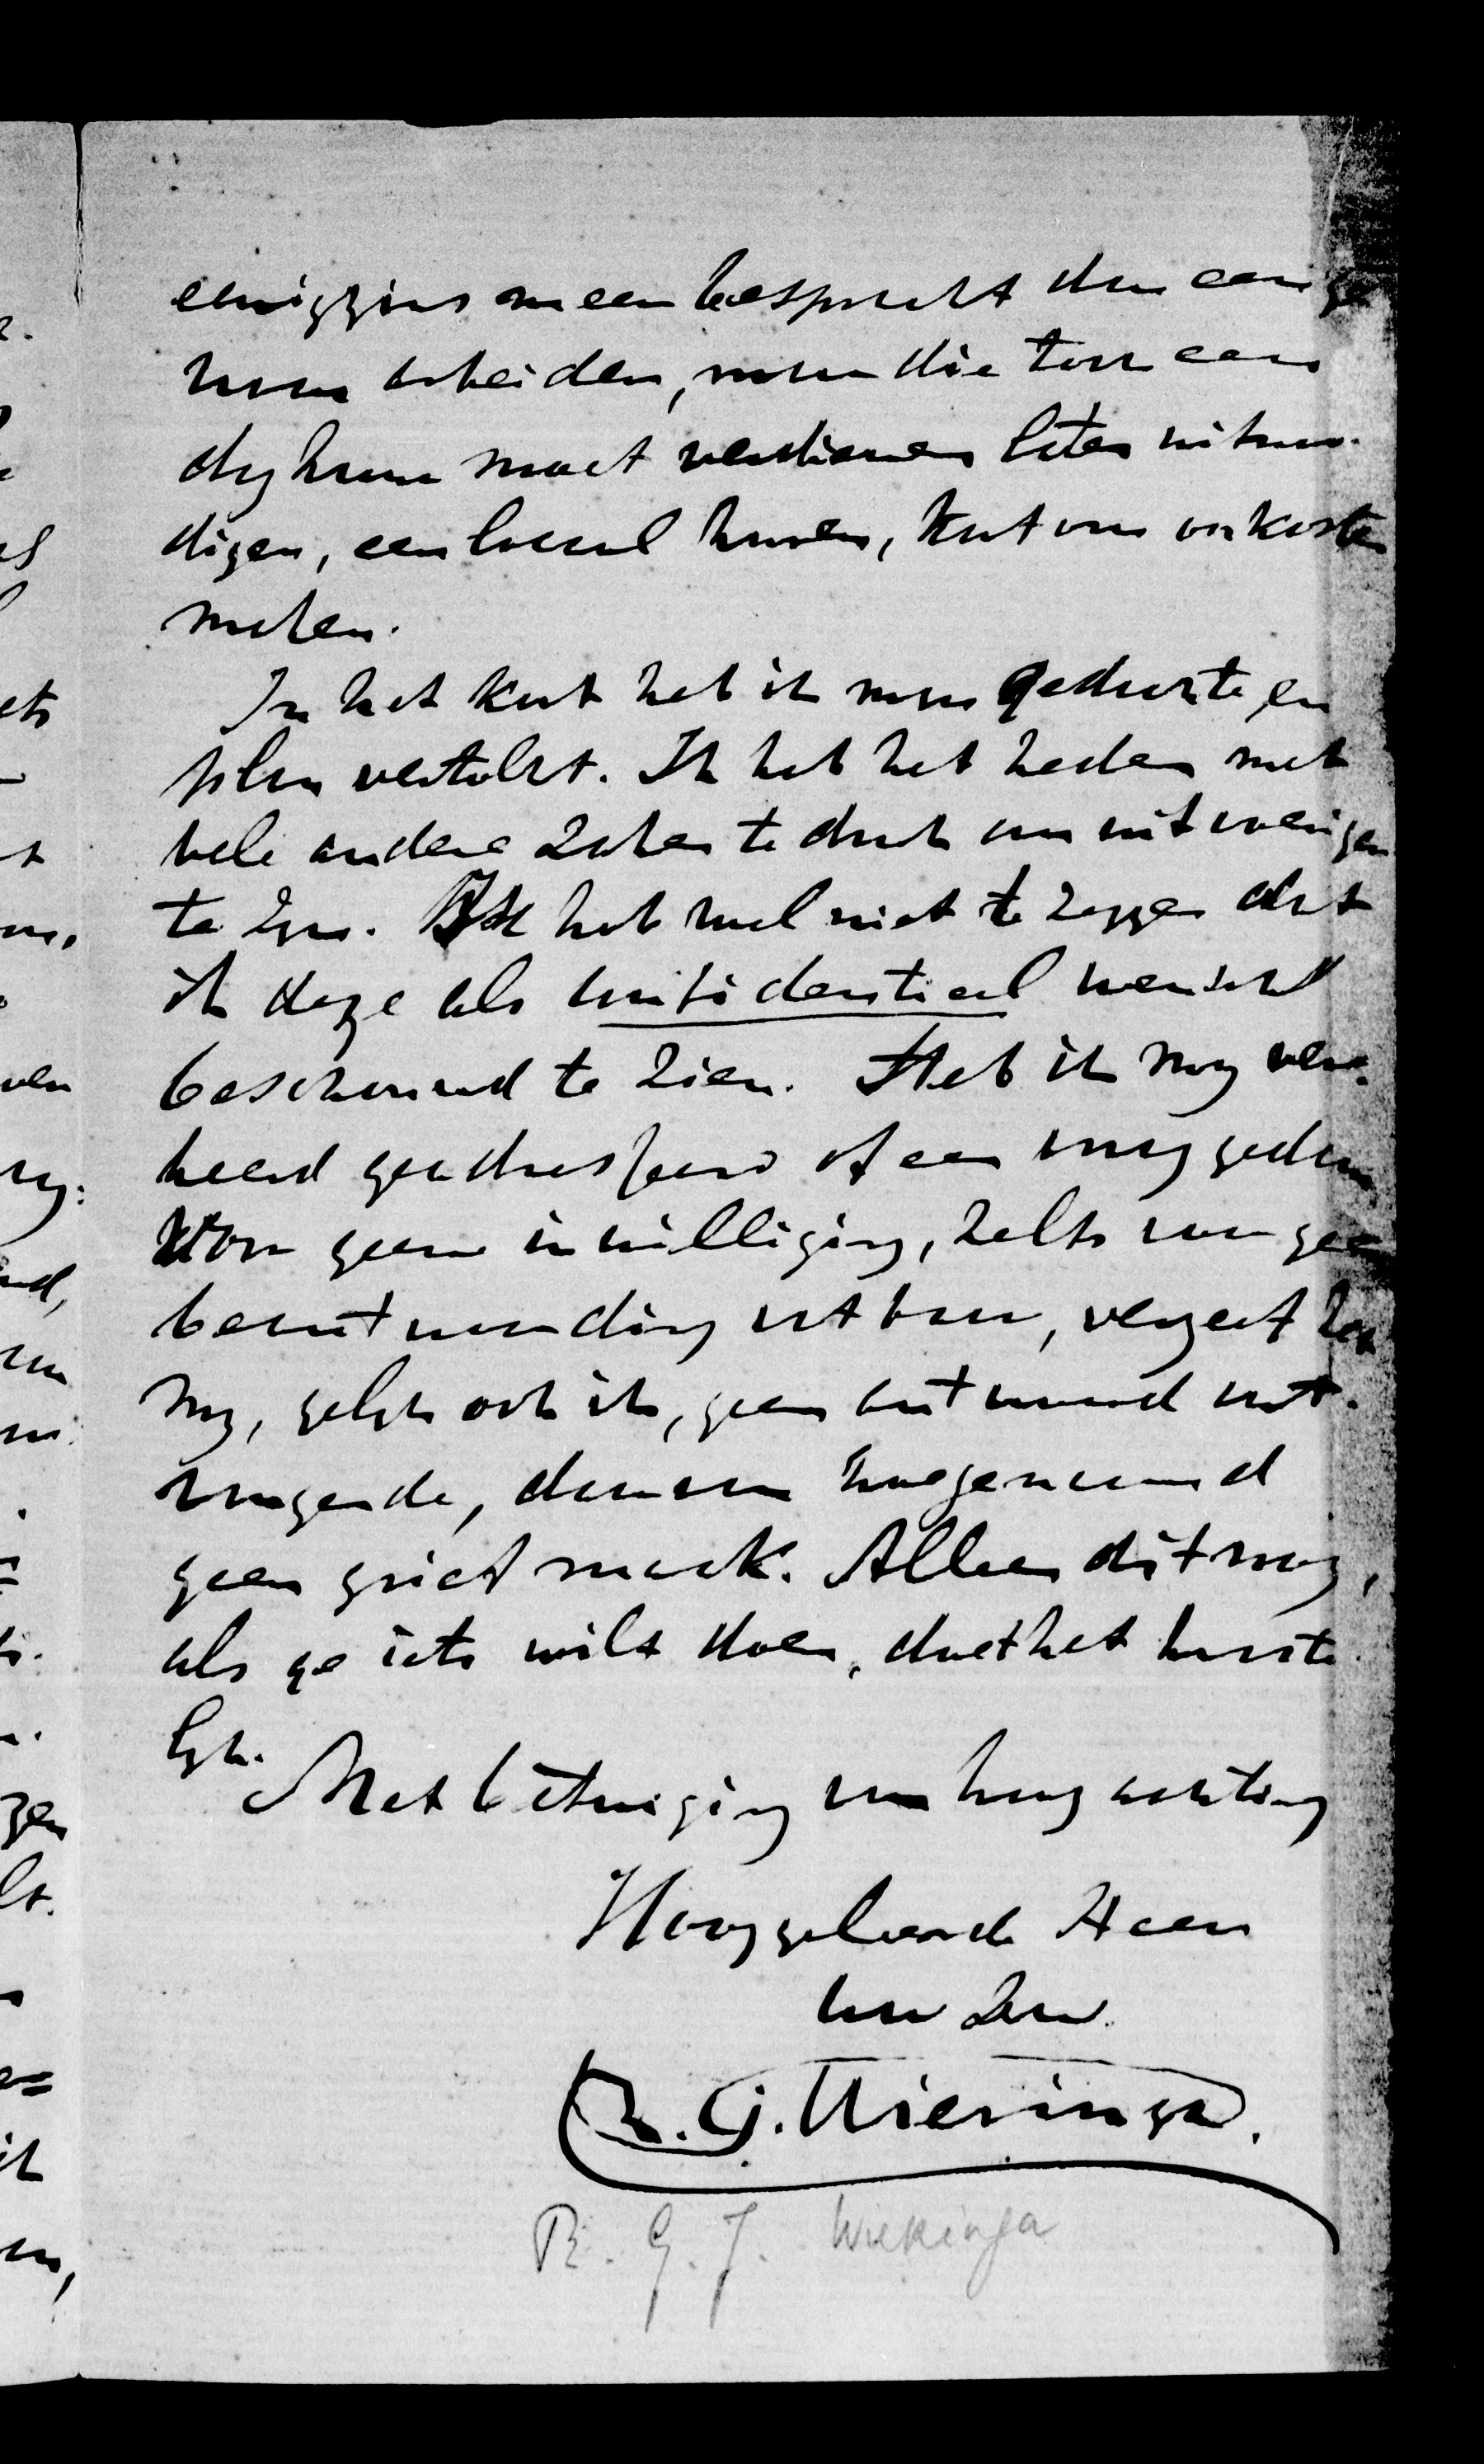 eenigzins meen bespreekt dan eenige
naar arbeiden, maar die toch een
daghuur moet verdienen laten uitnoo-
digen, een locaal huren, kortom onkosten
maken.
In het kort heb ik mijn gedachte en
plan vertolkt. Ik heb het heden met
vele andere zaken te druk om uitvoeriger
te zijn. Ik heb wel niet te zeggen dat
ik deze als confidentieel wensch
beschouwd te zien. Heb ik mij ver-
keerd geadresseerd of een mijn
Uwer geene inwilliging, zelfs van geen
beantwoording vatbaar, vergeef het
my, gelyk ook ik, geen antwoord ont-
vangende, daarvan hoegenaamd
geen grief maak. Alleen dit nog,
als ge iets wilt doen, doet het haaste-
lyk.
Met betuiging van hoogachting
Hooggeleerde Heer
Uw Dw.
R. G. Wieringa.
R. G. J. Wieringa